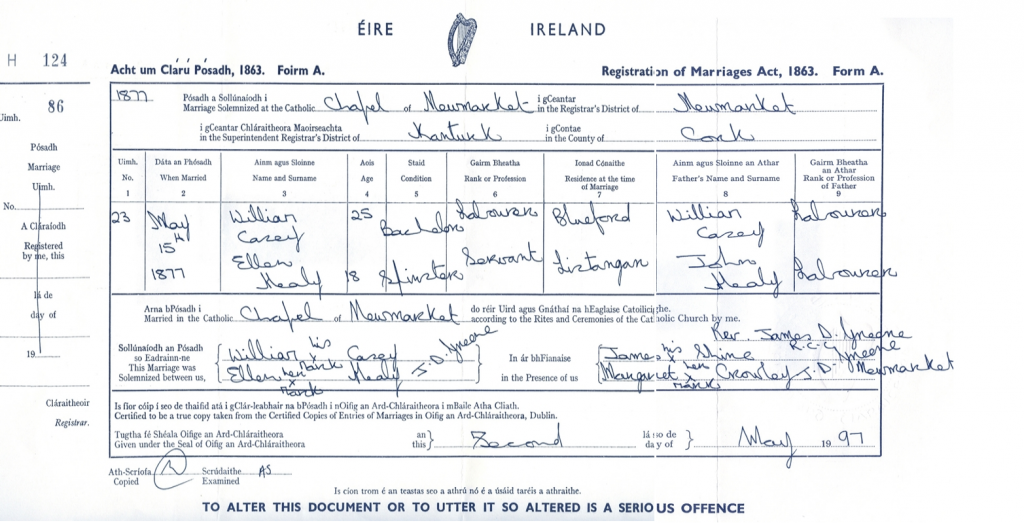 ÉIRE IRELAND
H 124
Acht um Clárú Pósadh, 1863. Foirm A. Registration of Marriages Act, 1863. Form A.
86
Uimh.
Pósadh
Marriage
Uimh.
No.
A Cláraíodh
Registered
by me, this
lá de
day of
19
Cláraitheoir
Registrar.
1877 Pósadh a Sollúnaíodh i
Marriage Solemnized at the Catholic Chapel of Newmarket i gCeantar
in the Registrar's District of Newmarket
i gCeantar Chláraitheora Maoirseachta
in the Superintendent Registrar's District of Kanturk i gContae
in the County of Cork
Uimh. Dáta an Phósadh Ainm agus Sloinne Aois Staid Gairm Bheatha Ionad Cónaithe Ainm agus Sloinne an Athar Gairm Bheatha
an Athar
No. When Married Name and Surname Age Condition Rank or Profession Residence at the time
of Marriage Father's Name and Surname Rank or Profession
of Father
1 2 3 4 5 6 7 8 9
23 May 15th 1877 William Casey 25 Bachelor Labourer Blueford William Casey Labourer
Ellen Healy 18 Spinster Servant Listangan John Healy Labourer
Arna bPósadh i
Married in the Catholic Chapel of Newmarket do réir Uird agus Gnáthaí na hEaglaise Catoilicighe.
according to the Rites and Ceremonies of the Catholic Church by me.
Rev. James D.
R.C.C.
Newmarket
Sollúnaíodh an Pósadh
so Eadrainn-ne
This Marriage was
Solemnized between us,
William his x mark Casey
Ellen her x mark Healy J.D.
In ár bhFianaise
in the Presence of us
James his x Shine
Margaret her x mark Crowley J.D.
Is fíor cóip í seo de thaifid atá i gClár-leabhair na bPósadh i nOifig an Ard-Chláraitheora i mBaile Atha Cliath.
Certified to be a true copy taken from the Certified Copies of Entries of Marriages in Oifig an Ard-Chláraitheora, Dublin.
Tugtha fé Shéala Oifige an Ard-Chláraitheora
Given under the Seal of Oifig an Ard-Chláraitheora an
this Second lá so de
day of May 19 97
Ath-Scríofa
Copied
Scrúdaithe
Examined AS
Is cion trom é an teastas seo a athrú nó é a úsáid taréis a athraithe.
TO ALTER THIS DOCUMENT OR TO UTTER IT SO ALTERED IS A SERIOUS OFFENCE